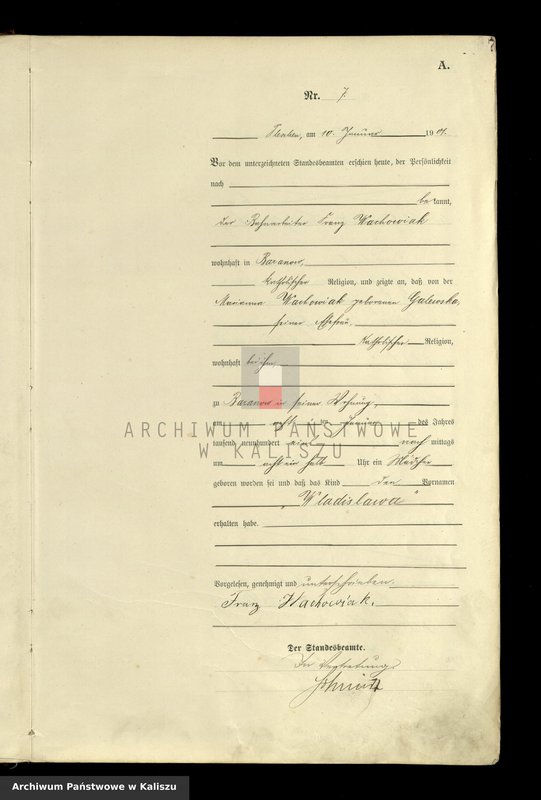 7
A.
Nr. 7.
Pleschen, am 10. Januar 1901.
Vor dem unterzeichneten Standesbeamten erschien heute, der Persönlichkeit
nach
bekannt,
der Bahnarbeiter Franz Wachowiak
wohnhaft in Baranow,
katholischer Religion, und zeigte an, daß von der
Marianna Wachowiak geborenen Galewska,
seiner Ehefrau,
katholischer Religion,
wohnhaft bei ihm,
zu Baranow in seiner Wohnung,
am achten Januar des Jahres
tausend neunhundert eins nachmittags
um acht ein halb Uhr ein Mädchen
geboren worden sei und daß das Kind den Vornamen
„Wladislawa"
erhalten habe.
Vorgelesen, genehmigt und unterschrieben.
Franz Wachowiak.
Der Standesbeamte.
In Vertretung.
ARCHIWUM PAŃSTWOWE
W KALISZU
Archiwum Państwowe w Kaliszu